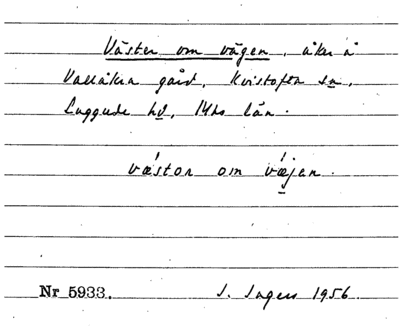 Väster om vägen, åker å
Vallåkra gård, Kvistofta sn,
Luggude hd, Mhs län.
vǽstor om vǽjen.
Nr 5933. I. Ingers 1956.